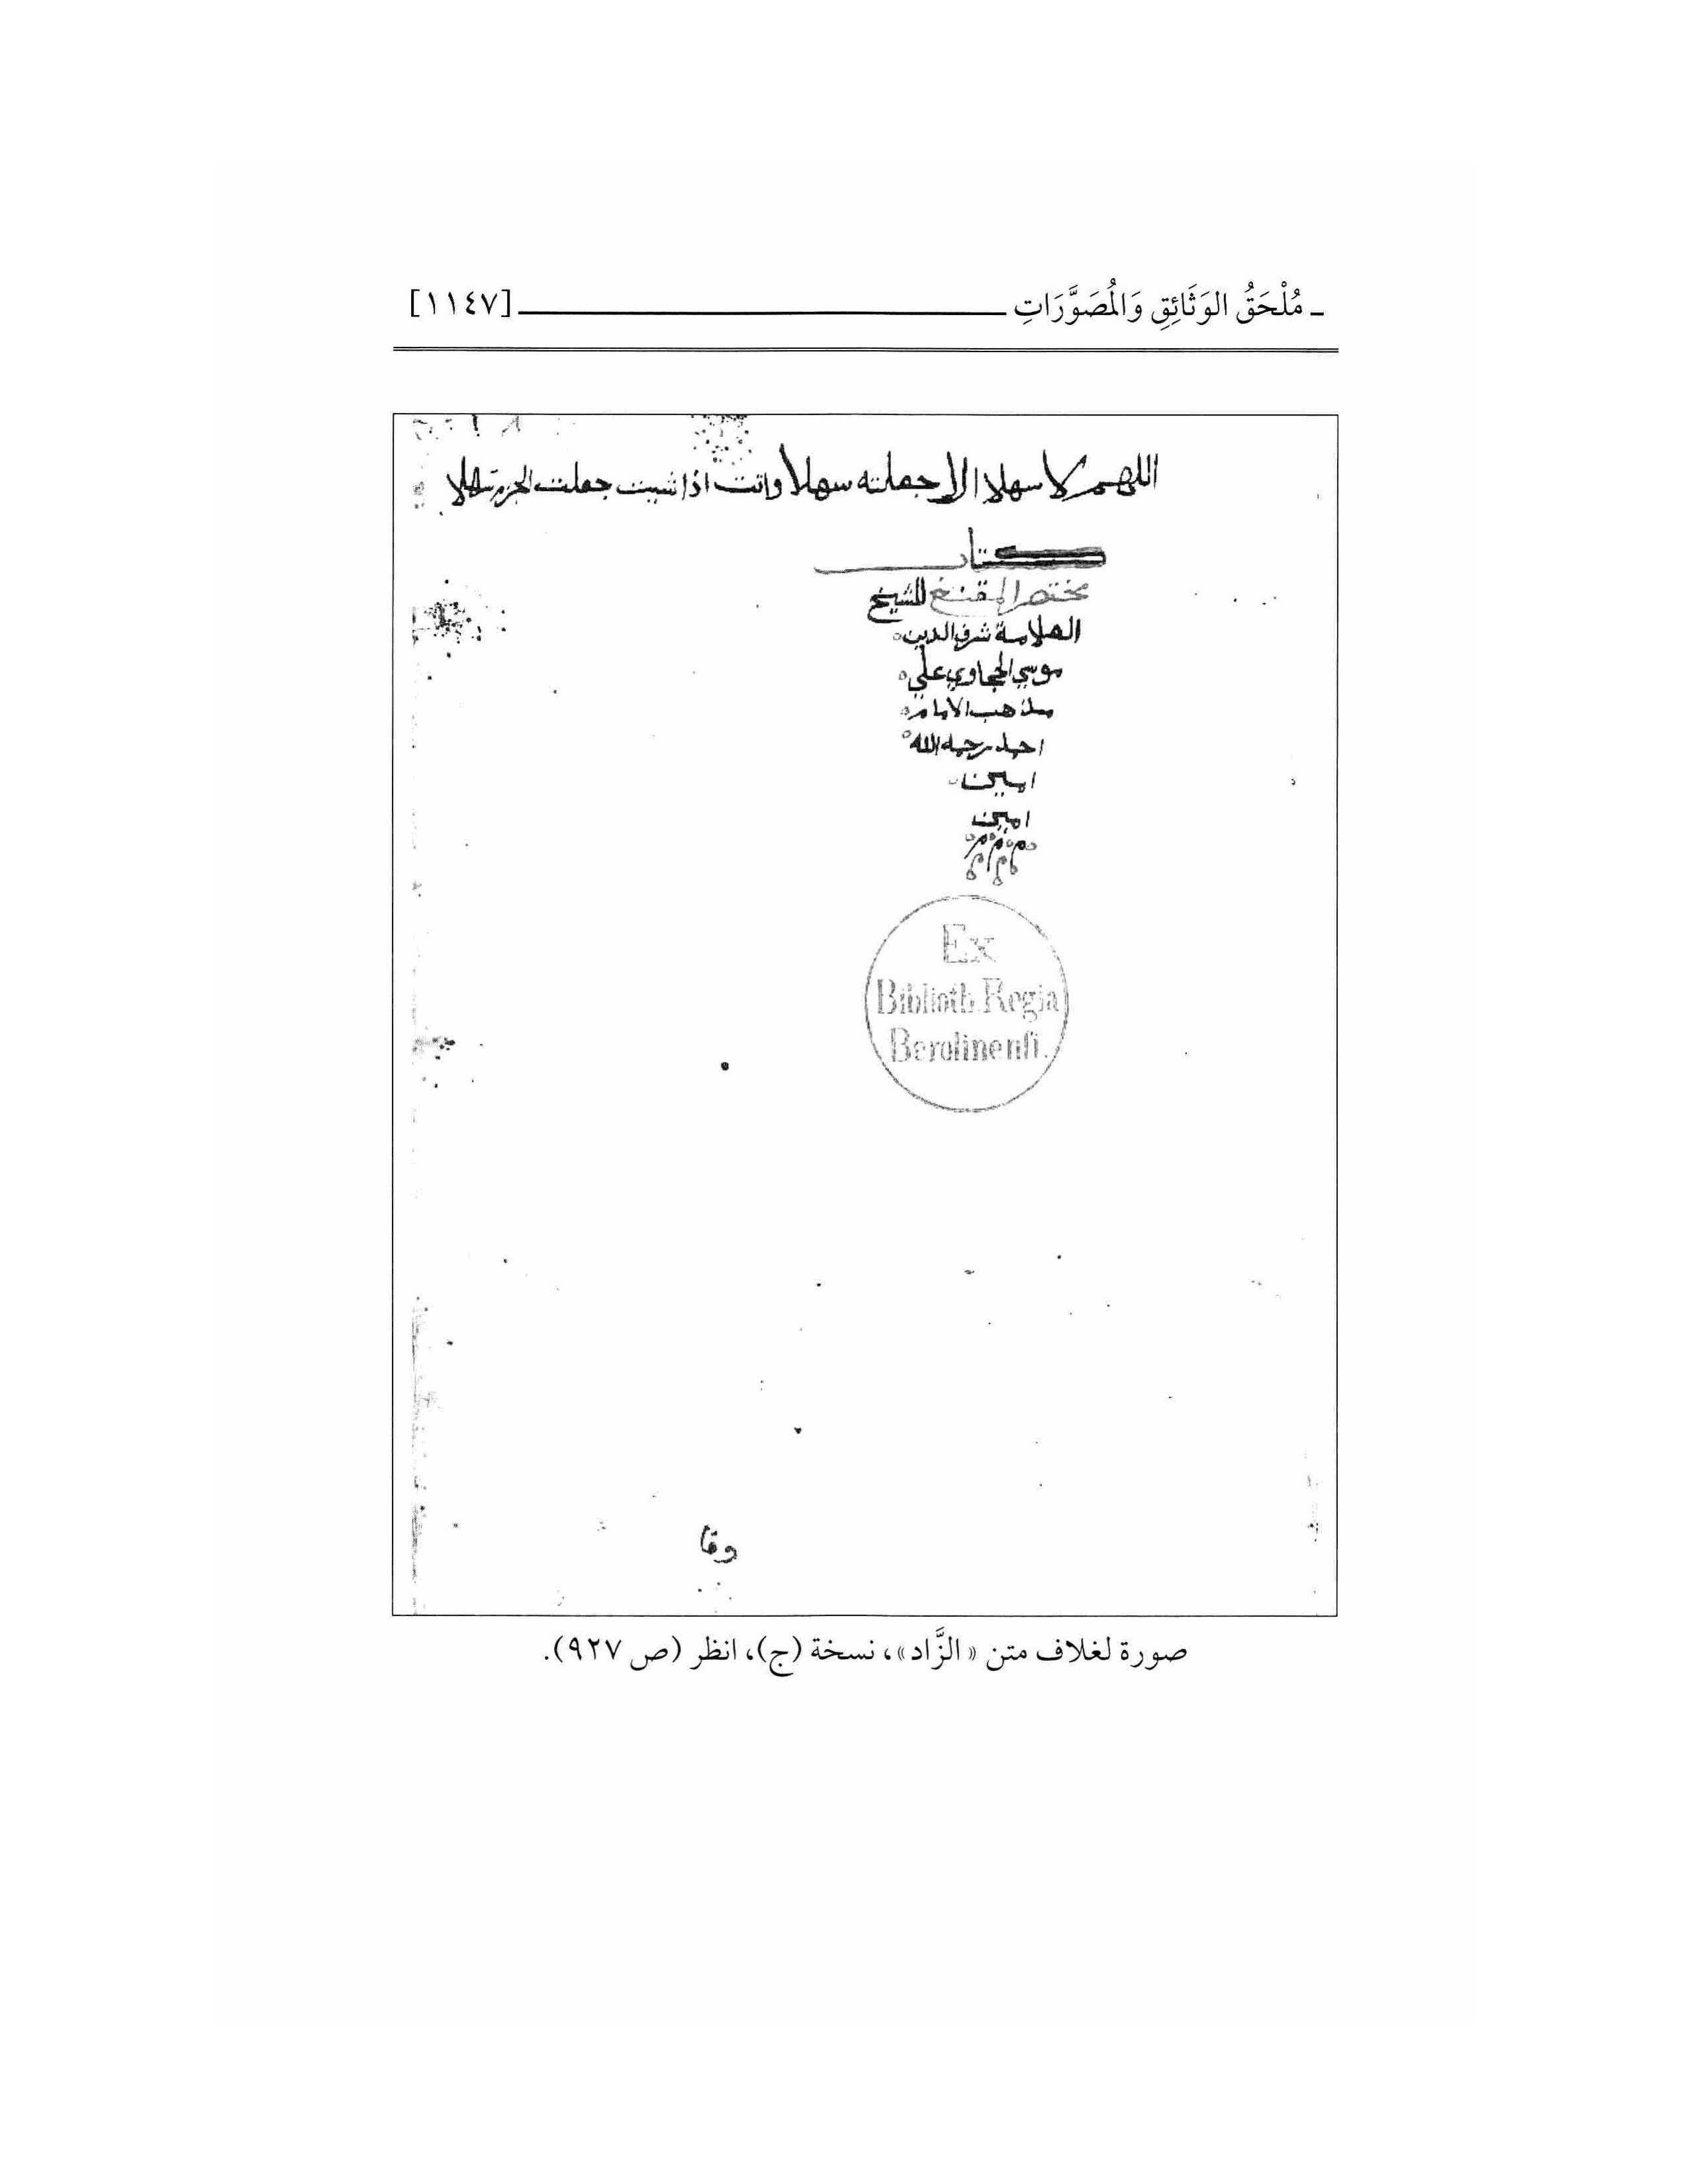 ـ مُلْحَقُ الوَثَائِقِ وَالمُصَوَّرَاتِ [١١٤٧]
اللهم لا سهلا الا جعلته سهلا وانت اذا شيت جعلت الحزن سهلا
كتاب
مختصر المقنع للشيخ
العلامة شرف الدين
موسي الحجاوي علي
مذهب الامام
احمد رحمه الله
امين
امين
م م م
م م م
Ex
Biblioth. Regia
Berolinenſi.
وقا
صورة لغلاف متن «الزَّاد»، نسخة (ج)، انظر (ص ٩٢٧).